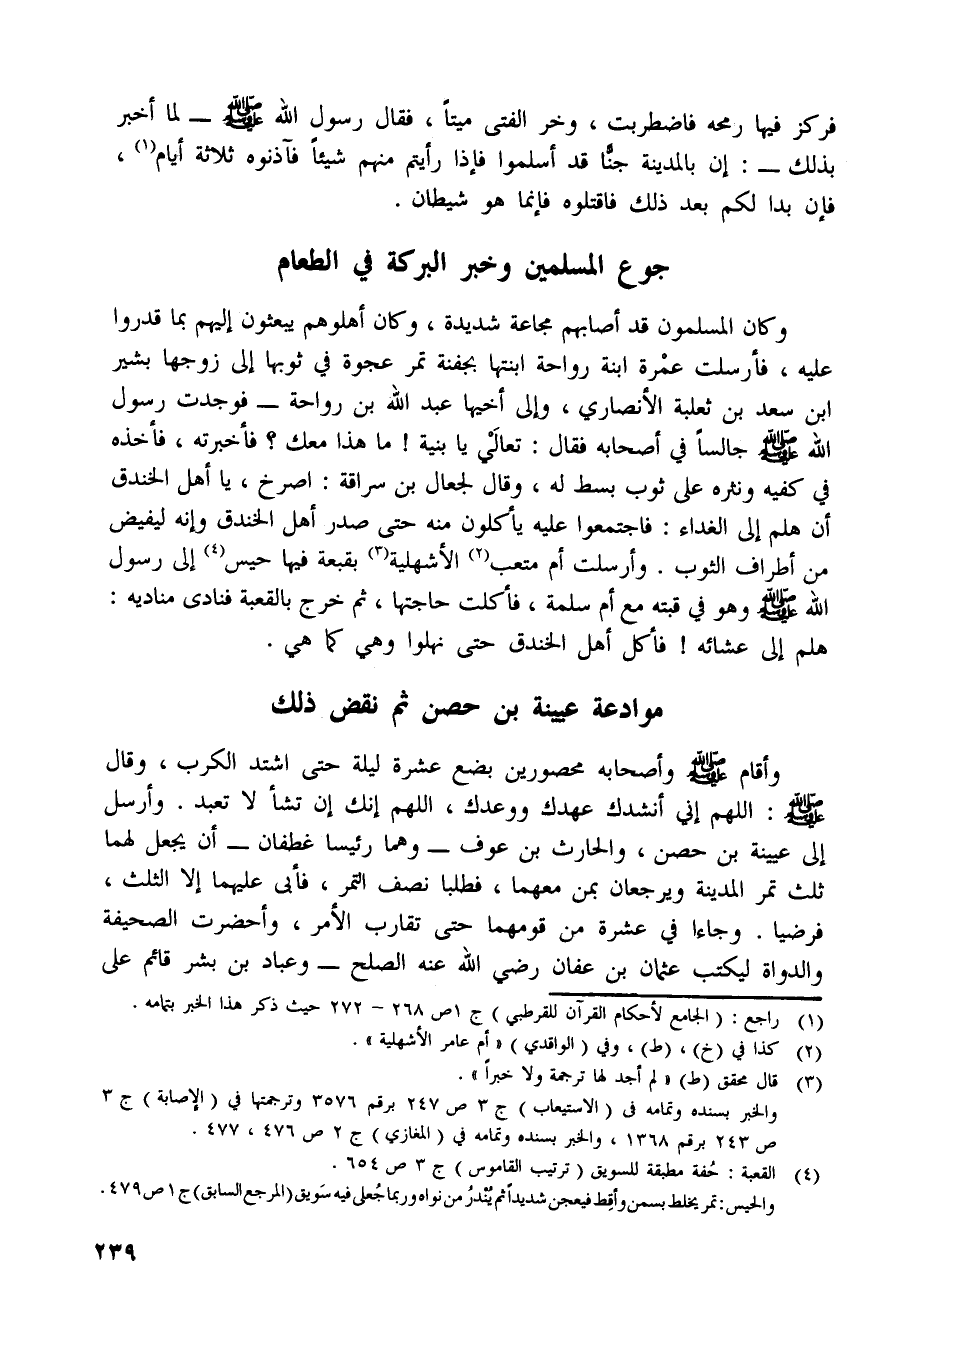 فركز فيها رمحه فاضطربت ، وخر الفتى ميتاً ، فقال رسول الله ﷺ ــ لما أخبر
بذلك ــ : إن بالمدينة جنًّا قد أسلموا فإذا رأيتم منهم شيئاً فآذنوه ثلاثة أيام(١) ،
فإن بدا لكم بعد ذلك فاقتلوه فإنما هو شيطان .
جوع المسلمين وخبر البركة في الطعام
وكان المسلمون قد أصابهم مجاعة شديدة ، وكان أهلوهم يبعثون إليهم بما قدروا
عليه ، فأرسلت عمْرة ابنة رواحة ابنتها بجفنة تمر عجوة في ثوبها إلى زوجها بشير
ابن سعد بن ثعلبة الأنصاري ، وإلى أخيها عبد الله بن رواحة ــ فوجدت رسول
الله ﷺ جالساً في أصحابه فقال : تعالَيْ يا بنية ! ما هذا معك ؟ فأخبرته ، فأخذه
في كفيه ونثره على ثوب بسط له ، وقال لجعال بن سراقة : اصرخ ، يا أهل الخندق
أن هلم إلى الغداء : فاجتمعوا عليه يأكلون منه حتى صدر أهل الخندق وإنه ليفيض
من أطراف الثوب . وأرسلت أم متعب(٢) الأشهلية(٣) بقعبة فيها حيس(٤) إلى رسول
الله ﷺ وهو في قبته مع أم سلمة ، فأكلت حاجتها ، ثم خرج بالقعبة فنادى مناديه :
هلم إلى عشائه ! فأكل أهل الخندق حتى نهلوا وهي كما هي .
موادعة عيينة بن حصن ثم نقض ذلك
وأقام ﷺ وأصحابه محصورين بضع عشرة ليلة حتى اشتد الكرب ، وقال
ﷺ : اللهم إني أنشدك عهدك ووعدك ، اللهم إنك إن تشأ لا تعبد . وأرسل
إلى عيينة بن حصن ، والحارث بن عوف ــ وهما رئيسا غطفان ــ أن يجعل لهما
ثلث تمر المدينة ويرجعان بمن معهما ، فطلبا نصف التمر ، فأبى عليهما إلا الثلث ،
فرضيا . وجاءا في عشرة من قومهما حتى تقارب الأمر ، وأحضرت الصحيفة
والدواة ليكتب عثمان بن عفان رضي الله عنه الصلح ــ وعباد بن بشر قائم على
(١) راجع : ( الجامع لأحكام القرآن للقرطبي ) ج ١ص ٢٦٨ – ٢٧٢ حيث ذكر هذا الخبر بتمامه .
(٢) كذا في (خ) ، (ط) ، وفي ( الواقدي ) « أم عامر الأشهلية » .
(٣) قال محقق (ط) « لم أجد لها ترجمة ولا خبراً » .
والخبر بسنده وتمامه فى ( الاستيعاب ) ج ٣ ص ٢٤٧ برقم ٣٥٧٦ وترجمتها في ( الإصابة ) ج ٣
ص ٢٤٣ برقم ١٣٦٨ ، والخبر بسنده وتمامه في ( المغازي ) ج ٢ ص ٤٧٦ ، ٤٧٧ .
(٤) القعبة : حُقة مطبقة للسويق ( ترتيب القاموس ) ج ٣ ص ٦٥٤ .
والحيس : تمر يخلط بسمن وأقِط فيعجن شديداً ثم يُنْدرُ من نواه وربما جُعلى فيه سَويق (المرجع السابق) ج ١ ص ٤٧٩ .
٢٣٩